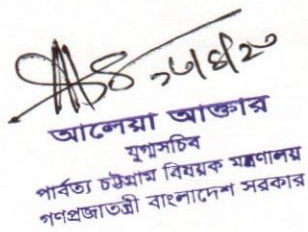 আলেয়া আক্তার
যুগ্মসচিব
পার্বত্য চট্টগ্রাম বিষয়ক মন্ত্রণালয়
গণপ্রজাতন্ত্রী বাংলাদেশ সরকার